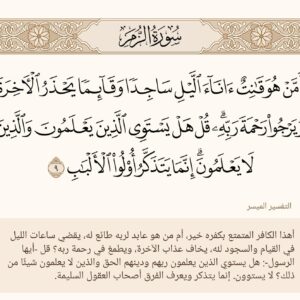 سُورَةُ الزُّمَرِ
أَمَّنْ هُوَ قَٰنِتٌ ءَانَآءَ ٱلَّيْلِ سَاجِدًا وَقَآئِمًا يَحْذَرُ ٱلْأٓخِرَةَ
وَيَرْجُوا۟ رَحْمَةَ رَبِّهِۦۗ قُلْ هَلْ يَسْتَوِى ٱلَّذِينَ يَعْلَمُونَ وَٱلَّذِينَ
لَا يَعْلَمُونَۗ إِنَّمَا يَتَذَكَّرُ أُو۟لُوا۟ ٱلْأَلْبَٰبِ ٩
التفسير الميسر
أهذا الكافر المتمتع بكفره خير، أم من هو عابد لربه طائع له، يقضي ساعات الليل
في القيام والسجود لله، يخاف عذاب الآخرة، ويطمع في رحمة ربه؟ قل -أيها
الرسول-: هل يستوي الذين يعلمون ربهم ودينهم الحق والذين لا يعلمون شيئًا من
ذلك؟ لا يستوون. إنما يتذكر ويعرف الفرق أصحاب العقول السليمة.